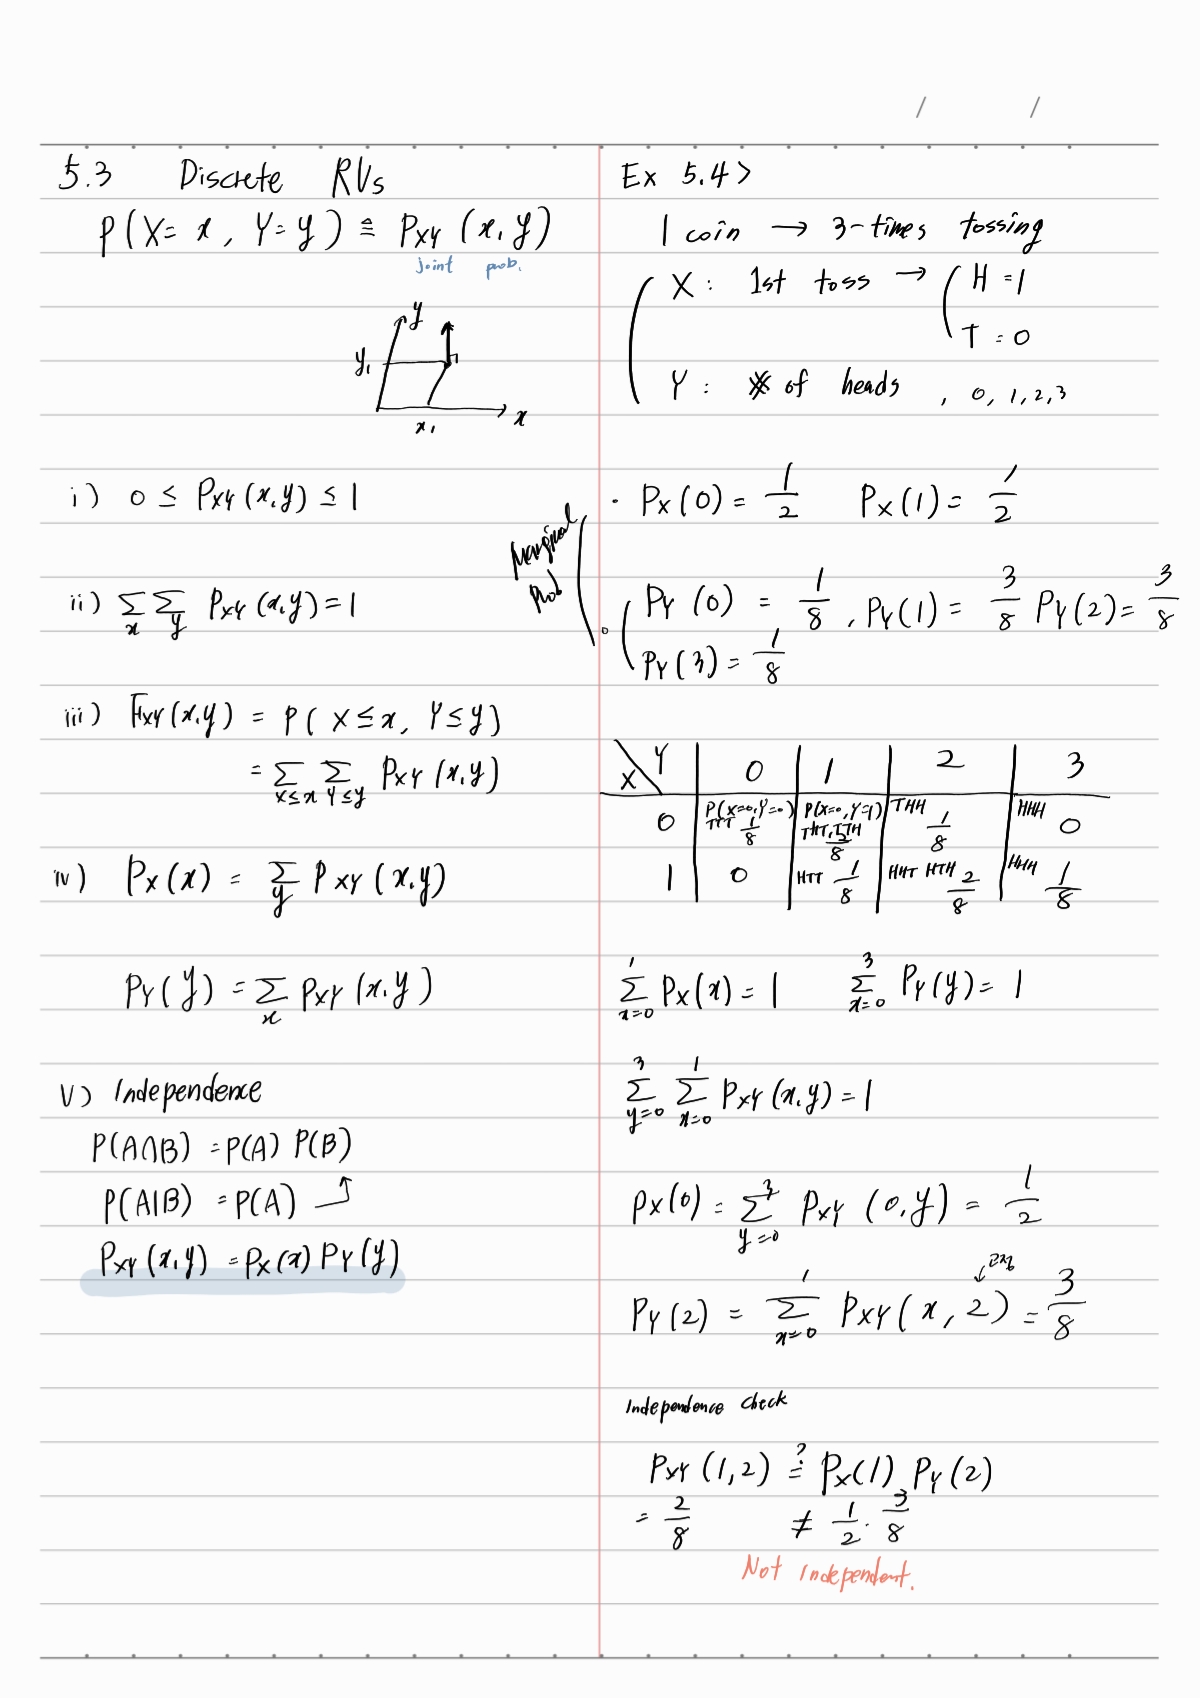 / /
5.3 Discrete RVs
P(X= x , Y= y) ≙ PXY (x,y)
joint prob.
y
y1
x1
x
i) 0 ≤ PXY(x,y) ≤ 1
ii) ∑x ∑y PXY(x,y)=1
iii) FXY(x,y) = P( X≤x, Y≤y)
= ∑X≤x ∑Y≤y PXY(x,y)
iv) PX(x) = ∑y PXY(x,y)
PY(y) = ∑x PXY(x,y)
V) Independence
P(A∩B) = P(A) P(B)
P(A|B) = P(A)
PXY(x,y) = PX(x) PY(y)
Ex 5.4>
1 coin → 3-times tossing
X : 1st toss → H = 1
T = 0
Y : # of heads , 0, 1, 2, 3
Marginal
Prob
· PX(0) = 1/2 PX(1) = 1/2
PY(0) = 1/8 , PY(1) = 3/8 PY(2) = 3/8
PY(3) = 1/8
X Y 0 1 2 3
0 P(X=0,Y=0) TTT 1/8 P(X=0,Y=1) THT,TTH 2/8 THH 1/8 HHH 0
1 0 HTT 1/8 HHT HTH 2/8 HHH 1/8
∑x=0^1 PX(x) = 1 ∑x=0^3 PY(y) = 1
∑y=0^3 ∑x=0^1 PXY(x,y) = 1
PX(0) = ∑y=0^3 PXY(0,y) = 1/2
PY(2) = ∑x=0^1 PXY(x,2) = 3/8
Independence check
PXY(1,2) ≟ PX(1) PY(2)
= 2/8 ≠ 1/2 · 3/8
Not independent.